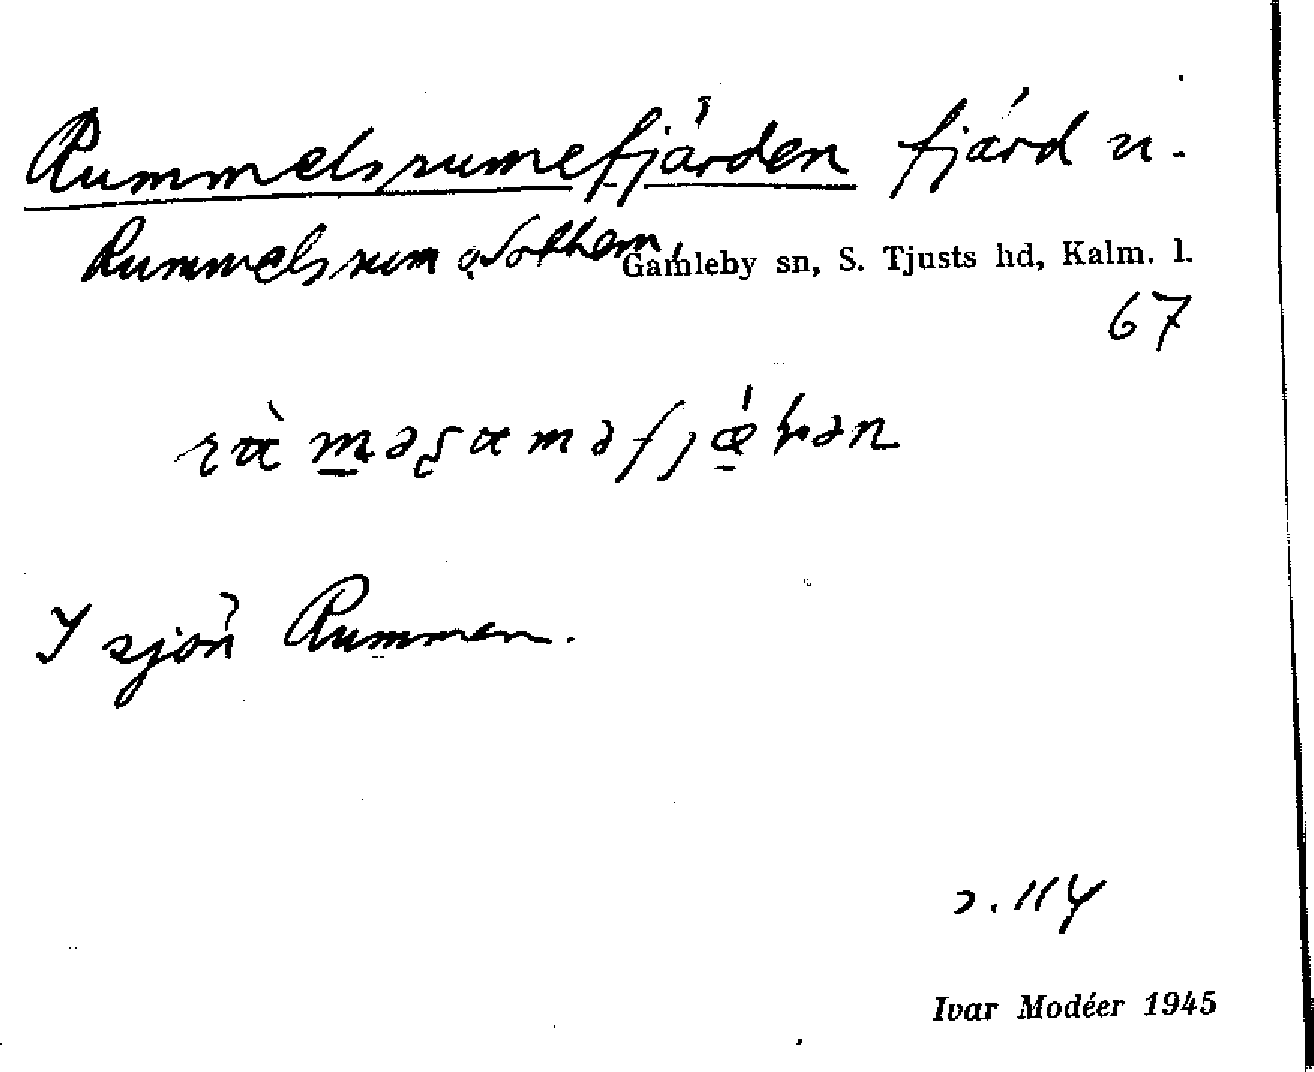 Rummelsrumefjärden fjärd n.
Rummelsrum o. Gamleby sn, S. Tjusts hd, Kalm. l.
67
I sjön Rummen.
s. 114
Ivar Modéer 1945